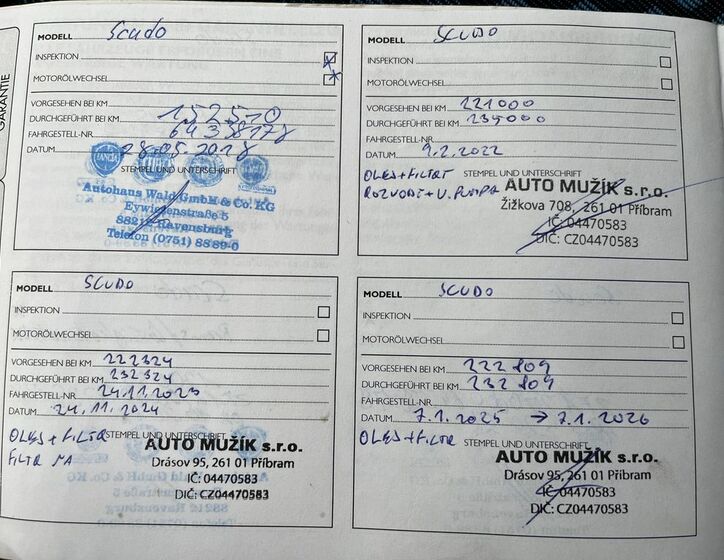 GARANTIE
MODELL Scudo
INSPEKTION
MOTORÖLWECHSEL
VORGESEHEN BEI KM
DURCHGEFÜHRT BEI KM 152510
FAHRGESTELL-NR. 64358178
DATUM 28.05.2018
STEMPEL UND UNTERSCHRIFT
LANCIA
Autohaus Wald GmbH & Co. KG
Eywiesenstraße 5
88212 Ravensburg
Telefon (0751) 88 89-0
MODELL SCUDO
INSPEKTION
MOTORÖLWECHSEL
VORGESEHEN BEI KM 221000
DURCHGEFÜHRT BEI KM 235000
FAHRGESTELL-NR.
DATUM 9.2.2022
OLEJ + FILTRY
STEMPEL UND UNTERSCHRIFT
ROZVODY + V. PUMPA
AUTO MUŽÍK s.r.o.
Žižkova 708, 261 01 Příbram
IČ: 04470583
DIČ: CZ04470583
MODELL SCUDO
INSPEKTION
MOTORÖLWECHSEL
VORGESEHEN BEI KM 222324
DURCHGEFÜHRT BEI KM 232324
FAHRGESTELL-NR. 24.11.2023
DATUM 24.11.2024
OLEJ + FILTR
STEMPEL UND UNTERSCHRIFT
FILTR
AUTO MUŽÍK s.r.o.
Drásov 95, 261 01 Příbram
IČ: 04470583
DIČ: CZ04470583
MODELL SCUDO
INSPEKTION
MOTORÖLWECHSEL
VORGESEHEN BEI KM 222809
DURCHGEFÜHRT BEI KM 232809
FAHRGESTELL-NR.
DATUM 7.1.2025 → 7.1.2026
OLEJ + FILTR
STEMPEL UND UNTERSCHRIFT
AUTO MUŽÍK s.r.o.
Drásov 95, 261 01 Příbram
IČ: 04470583
DIČ: CZ04470583